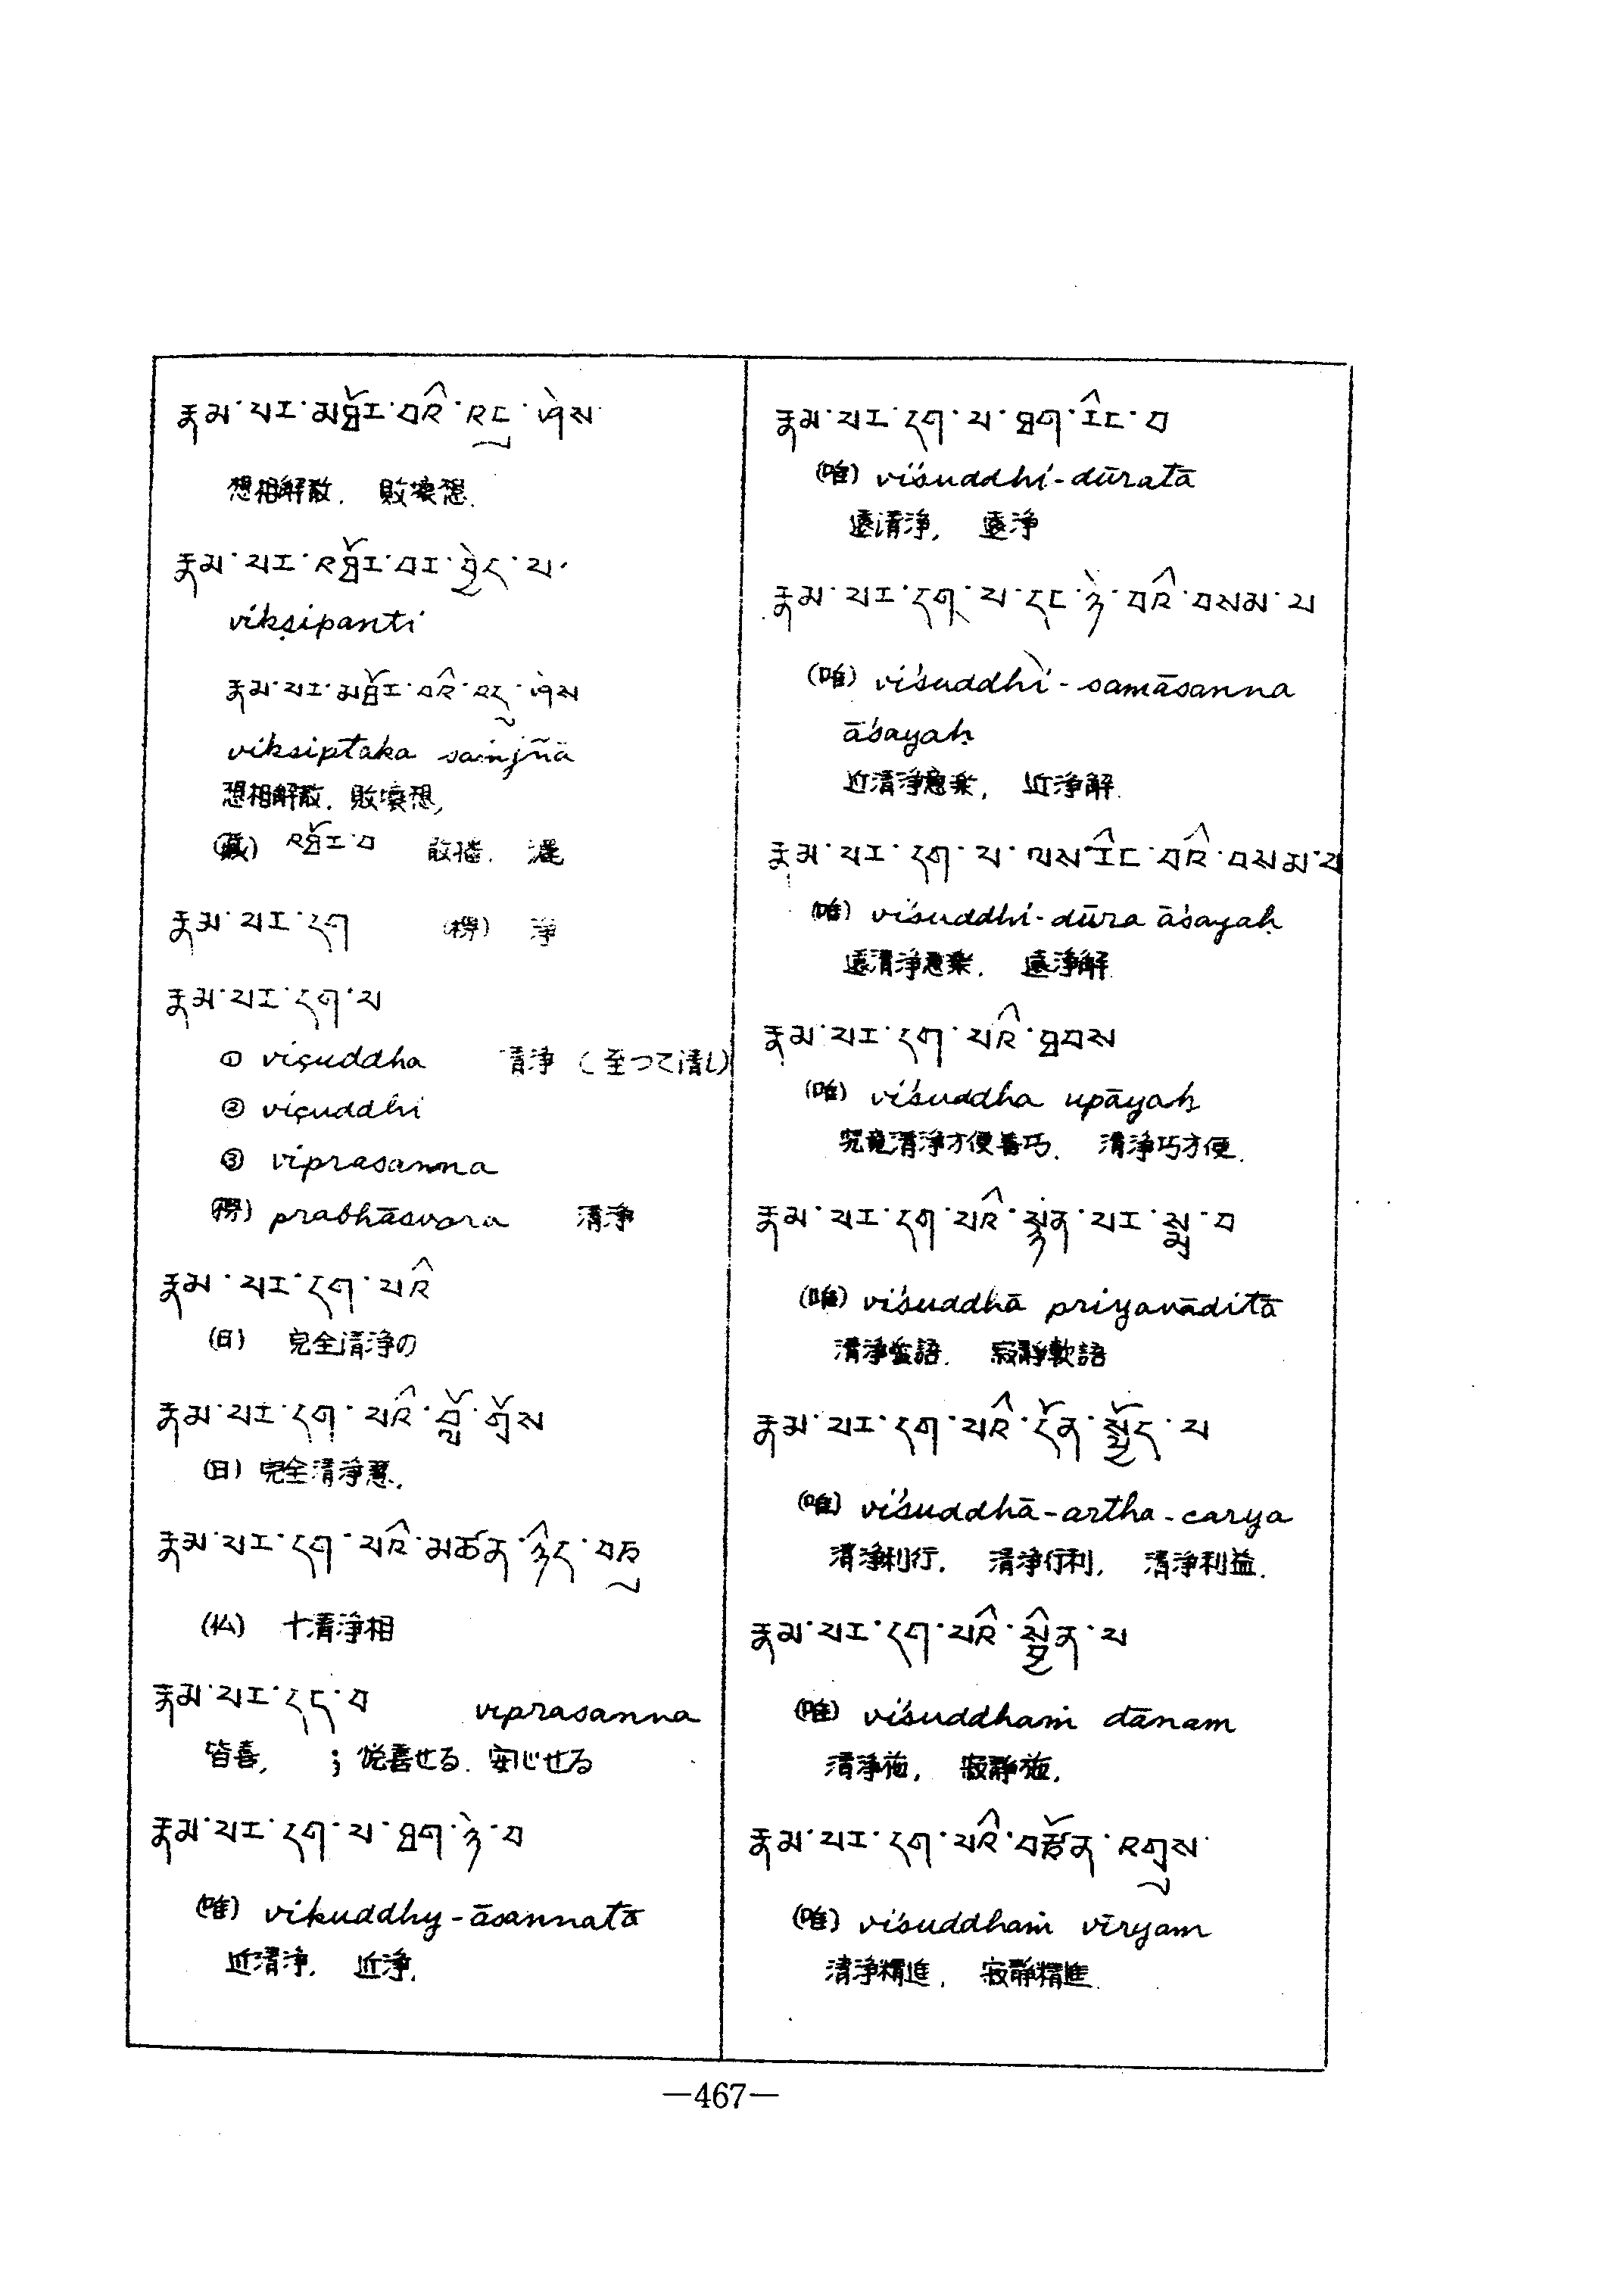 རྣམ་པར་མཐོར་བའི་འདུ་ཤེས་
想相解散. 敗壊想.
རྣམ་པར་འཐོར་བར་བྱེད་པ་
vikṣipanti
རྣམ་པར་མཐོར་བའི་འདུ་ཤེས
viksiptaka saṁjñā
想相解散. 敗壊想,
(蔵) འཐོར་བ 散播.
རྣམ་པར་དག (榜) 淨
རྣམ་པར་དག་པ
① viçuddha 清淨 (至つて清し)
② viçuddhi
③ viprasanna
(榜) prabhāsvara 清淨
རྣམ་པར་དག་པའི
(日) 完全清淨の
རྣམ་པར་དག་པའི་བློ་གྲོས
(日) 完全清淨慧.
རྣམ་པར་དག་པའི་མཚན་ཉིད་བཅུ
(仏) 十清淨相
རྣམ་པར་དང་བ viprasanna
皆喜, ; 悦喜せる. 安心せる
རྣམ་པར་དག་པ་ཐག་ཉེ་བ
(唯) vikuddhy-āsannatā
近清淨. 近淨.
རྣམ་པར་དག་པ་ཐག་རིང་བ
(唯) viśuddhi-dūratā
遠清淨, 遠淨
རྣམ་པར་དག་པ་དང་ཉེ་བའི་བསམ་པ
(唯) viśuddhi-samāsanna
āśayaḥ
近清淨意楽, 近淨解.
རྣམ་པར་དག་པ་ལས་རིང་བའི་བསམ་པ
(唯) viśuddhi-dūra āśayaḥ
遠清淨意楽. 遠淨解.
རྣམ་པར་དག་པའི་ཐབས
(唯) viśuddha upāyaḥ
究竟清淨方便善巧. 清淨巧方便.
རྣམ་པར་དག་པའི་སྙན་པར་སྨྲ་བ
(唯) viśuddhā priyavāditā
清淨愛語. 寂靜軟語
རྣམ་པར་དག་པའི་དོན་སྤྱོད་པ
(唯) viśuddhā-artha-carya
清淨利行. 清淨行利, 清淨利益.
རྣམ་པར་དག་པའི་སྦྱིན་པ
(唯) viśuddhaṁ dānam
清淨施, 寂靜施.
རྣམ་པར་དག་པའི་བརྩོན་འགྲུས་
(唯) viśuddhaṁ vīryam
清淨精進, 寂靜精進.
—467—